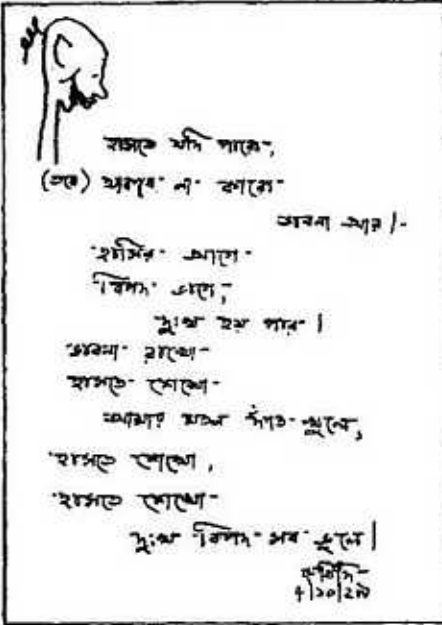 হাসতে যদি পারো-,
(তবে) থাকবে- না- কারো-
ভাবনা আর।-
হাসির- আগে-
বিপদ- ভাগে,-
দুঃখ হয় পার-।
ভাবনা- রাখো-
হাসতে- শেখো-
আমার মতন দাঁত- খুলে,
হাসতে শেখো,
হাসতে শেখো-
দুঃখ- বিপদ- সব- ভুলে।